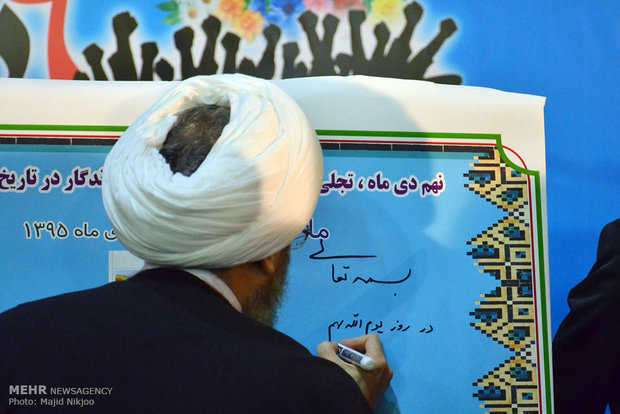 نهم دی ماه ، تجلی
ندگار در تاریخ
ی ماه ۱۳۹۵
بسمه تعالی
در روز یوم الله نهم
MEHR NEWSAGENCY
Photo: Majid Nikjoo